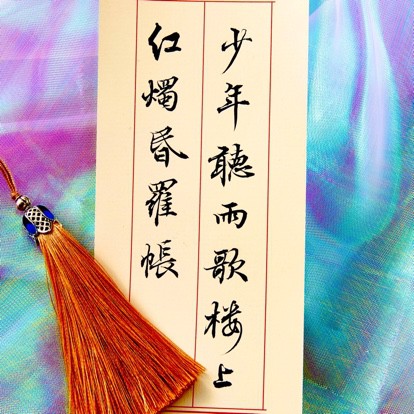 少年聽雨歌楼上
红燭昏羅帳